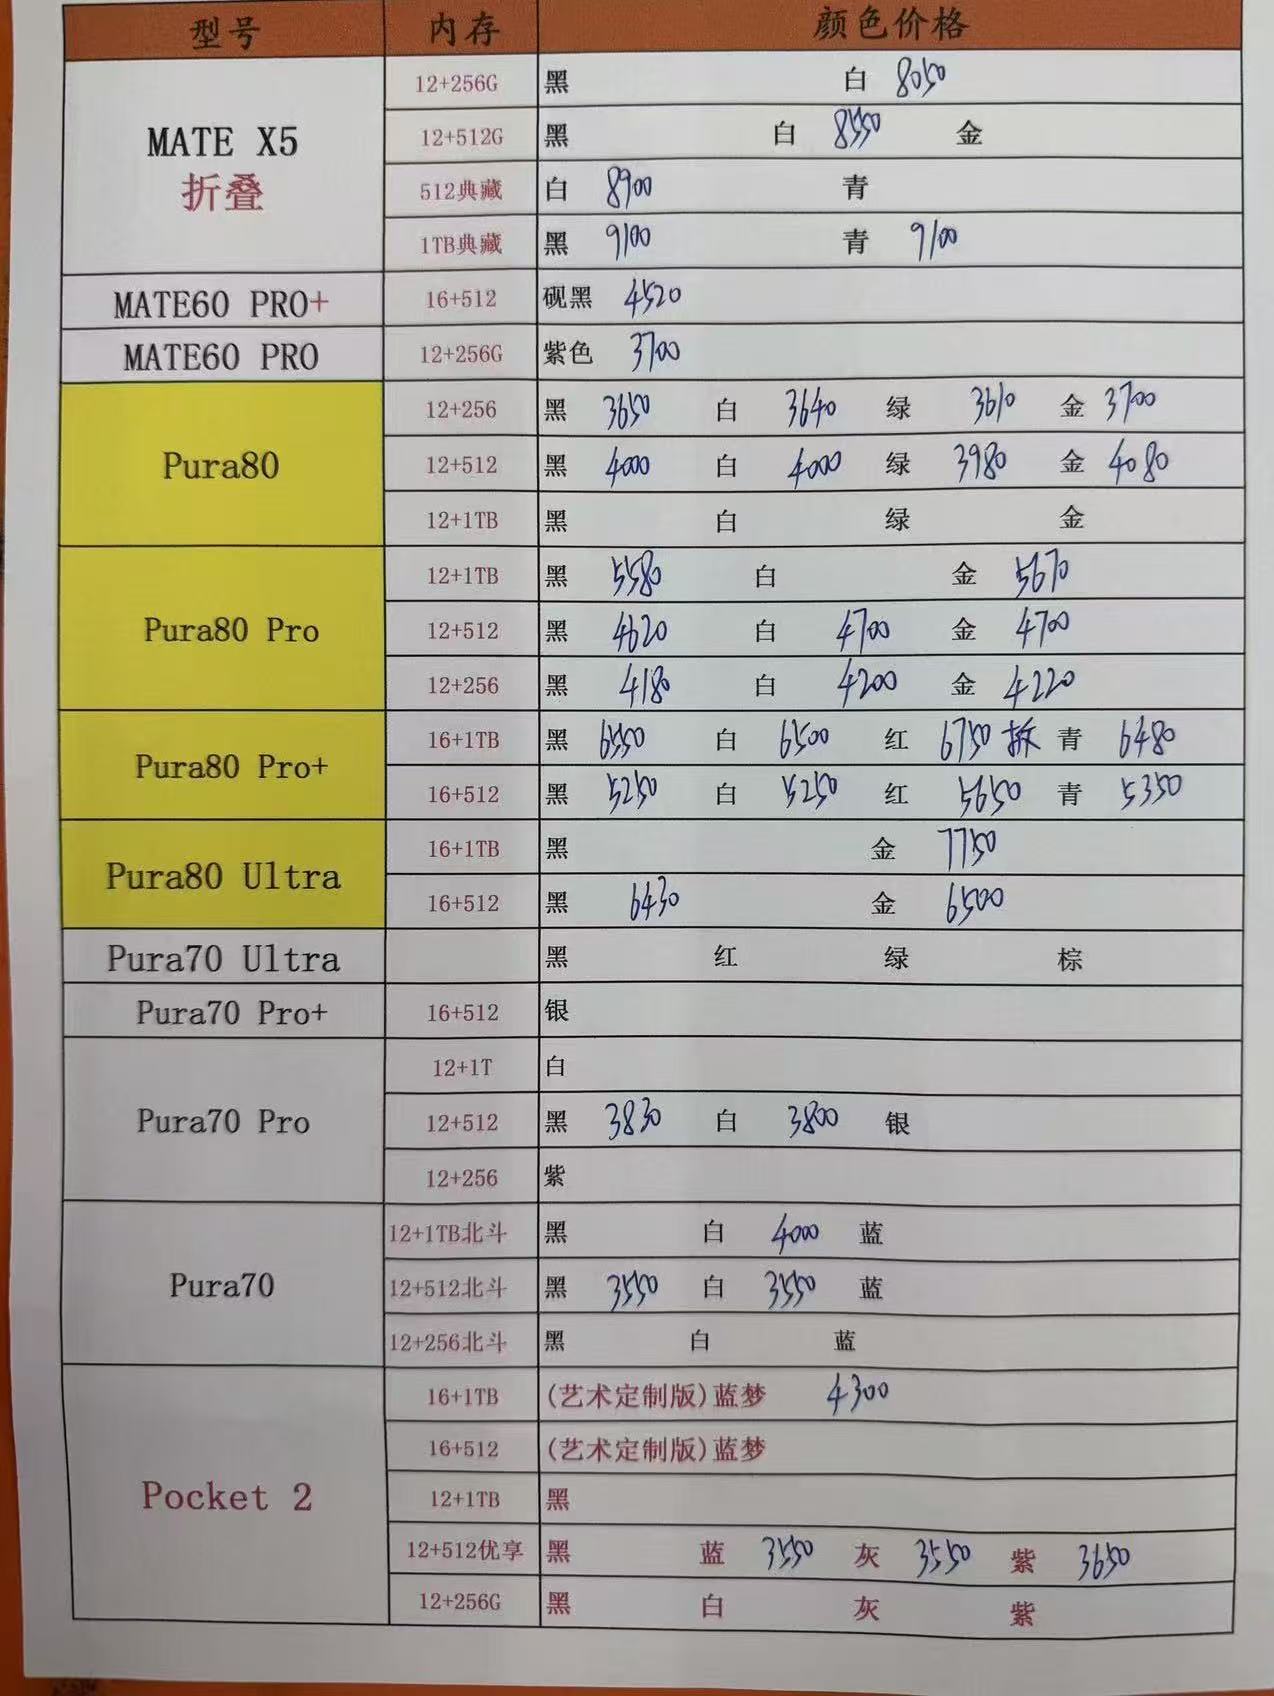 型号 内存 颜色价格
12+256G 黑 白 8050
MATE X5 12+512G 黑 白 8550 金
折叠 512典藏 白 8900 青
1TB典藏 黑 9100 青 9100
MATE60 PRO+ 16+512 砚黑 4520
MATE60 PRO 12+256G 紫色 3700
12+256 黑 3650 白 3640 绿 3610 金 3700
Pura80 12+512 黑 4000 白 4000 绿 3980 金 4080
12+1TB 黑 白 绿 金
12+1TB 黑 5580 白 金 5670
Pura80 Pro 12+512 黑 4620 白 4700 金 4700
12+256 黑 4180 白 4200 金 4220
16+1TB 黑 6550 白 6500 红 6750 拆 青 6480
Pura80 Pro+ 16+512 黑 5250 白 5250 红 5650 青 5350
16+1TB 黑 金 7750
Pura80 Ultra 16+512 黑 6430 金 6500
Pura70 Ultra 黑 红 绿 棕
Pura70 Pro+ 16+512 银
12+1T 白
Pura70 Pro 12+512 黑 3830 白 3800 银
12+256 紫
12+1TB北斗 黑 白 4000 蓝
Pura70 12+512北斗 黑 3550 白 3550 蓝
12+256北斗 黑 白 蓝
16+1TB (艺术定制版)蓝梦 4300
16+512 (艺术定制版)蓝梦
Pocket 2 12+1TB 黑
12+512优享 黑 蓝 3550 灰 3550 紫 3650
12+256G 黑 白 灰 紫